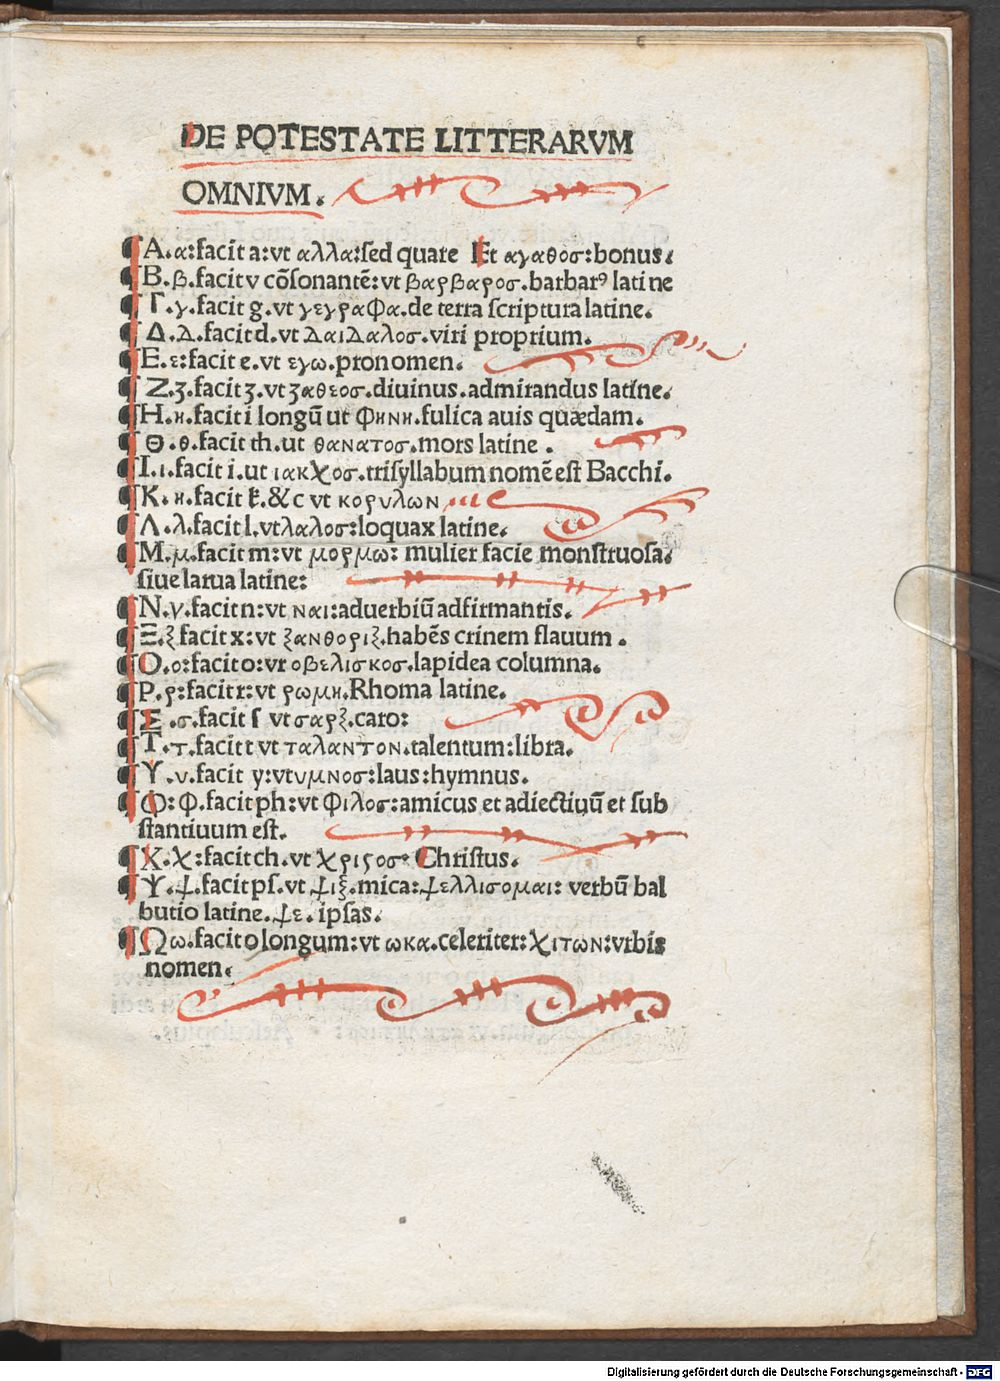 DE POTESTATE LITTERARVM
OMNIVM.
Α.α:facit a:vt αλλα:sed quare Et αγαθοσ:bonus.
Β.β.facit v cõsonantẽ:vt βαρβαροσ.barbarꝰ latine
Γ.γ.facit g.vt γεγραφα.de terra scriptura latine.
Δ.Δ.facit d.vt ΔαιΔαλοσ.viri proprium.
Ε.ε:facit e.vt εγω.pronomen.
Ζ.ʒ.facit ʒ.vt ʒαθεοσ.diuinus.admirandus latine.
Η.н.facit i longũ ut φнνн.fulica auis quædam.
Θ.θ.facit th.ut θανατοσ.mors latine.
Ι.ι.facit i.ut ιακχοσ.trisyllabum nomẽ est Bacchi.
Κ.н.facit k.&c vt κορυλων
Λ.λ.facit l.vt λαλοσ:loquax latine.
Μ.μ.facit m:vt μορμω: mulier facie monstruosa.
siue larua latine:
Ν.ν.facit n:vt ναι:aduerbiũ adfirmantis.
Ξ.ξ facit x:vt ξανθοριξ.habẽs crinem flauum.
Ο.ο:facit o:vr οβελισκοσ.lapidea columna.
Ρ.ρ:facit r:vt ρωμн.Rhoma latine.
Σ.σ.facit ſ vt σαρξ.caro:
Τ.τ.facit t vt ταλαντον.talentum:libra.
Υ.υ.facit y:vt υμνοσ:laus:hymnus.
Φ:φ.facit ph:vt φιλοσ:amicus et adiectiuũ et sub
stantiuum est.
Χ.χ:facit ch.vt χριϛοσ Christus.
Ψ.ψ.facit ps.vt ψιξ.mica:ψελλισομαι: verbũ bal
butio latine.ψε.ipsas.
Ωω.facit o longum:vt ωκα.celeriter:χιτων:vrbis
nomen.
Digitalisierung gefördert durch die Deutsche Forschungsgemeinschaft - DFG